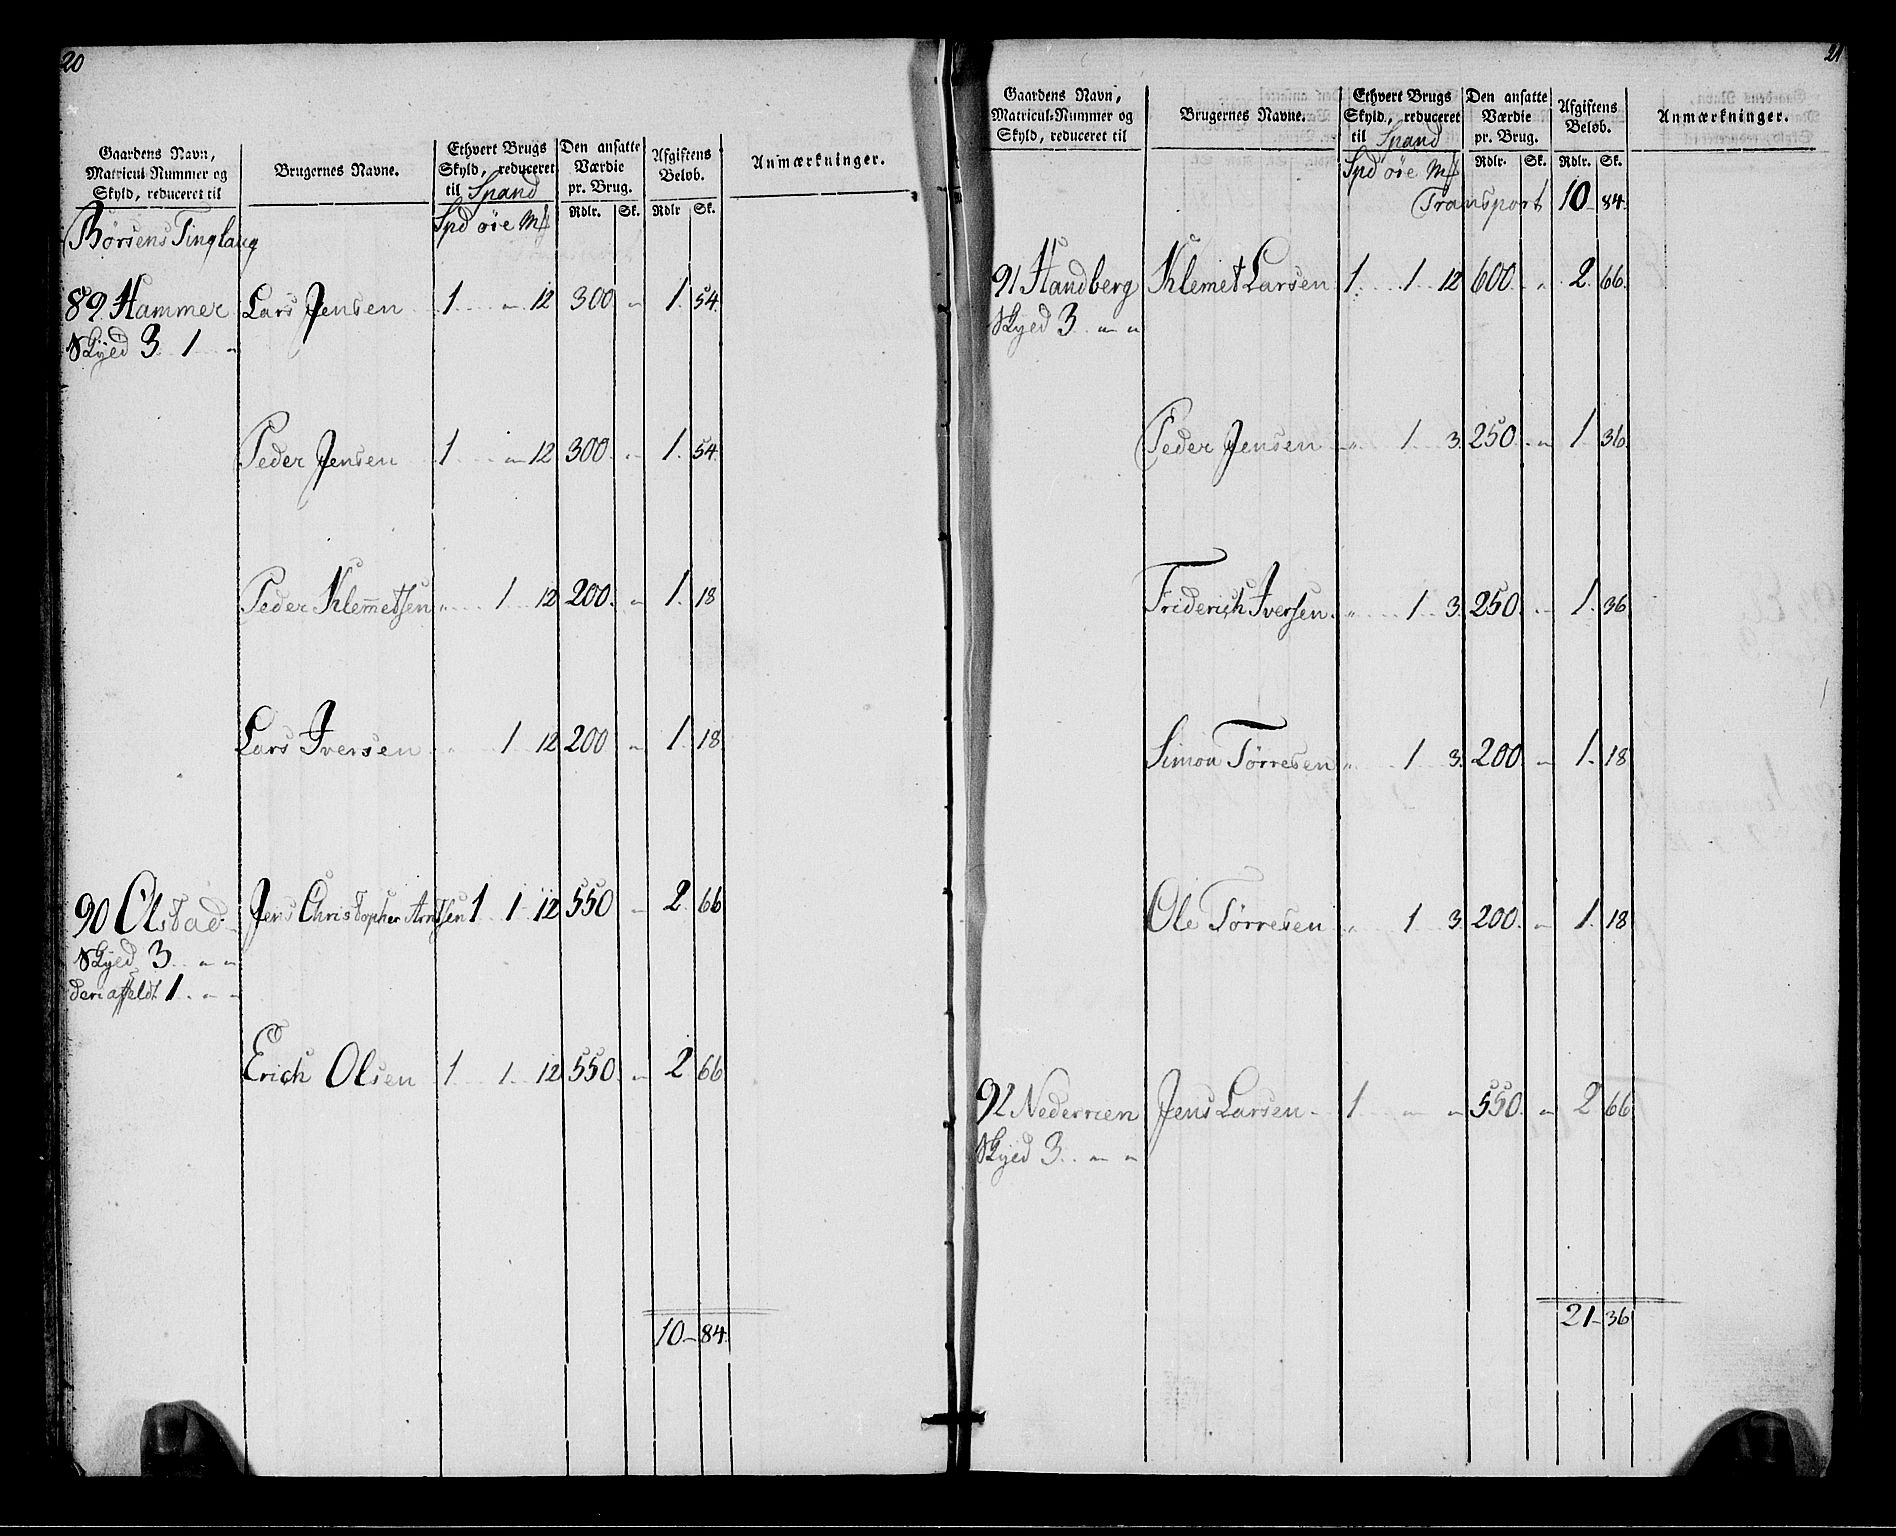 20
Gaardens Navn, Matricul-Nummer og Skyld, reduceret til | Brugernes Navne. | Ethvert Brugs Skyld, reduceret til Spand | Den ansatte Værdie pr. Brug. | Afgiftens Beløb. | Anmærkninger.
Spd øre Mk | Rdlr. | Sk. | Rdlr | Sk.
Børsens Tinglaug
89 Hammer | Lars Jensen | 1 " 12 | 300 " | 1. 54.
Skyed 3 1 "
Peder Jensen | 1 " 12 | 300 " | 1. 54.
Peder Klemetsen | " 1 12 | 200 " | 1. 18
Lars Iversen | " 1 12 | 200 " | 1. 18
90 Ølstad | Jens Christopher Arntsen | 1 1 12 | 550 " | 2 66
Skyed 3 " "
deri affeldt 1 " "
Erich Olsen | 1 1 12 | 550 " | 2 66
10 84.
21
Gaardens Navn, Matricul-Nummer og Skyld, reduceret til | Brugernes Navne. | Ethvert Brugs Skyld, reduceret til Spand | Den ansatte Værdie pr. Brug. | Afgiftens Beløb. | Anmærkninger.
Spd øre Mk | Rdlr. | Sk. | Rdlr. | Sk.
Transport 10 84.
91 Handberg | Klemet Larsen | 1. 1 12 | 600. " | 2. 66.
Skyed 3 " "
Peder Jensen | " 1 3. | 250. " | 1. 36.
Friderich Iversen. | " 1 3. | 250. " | 1. 36
Simon Tørresen | " 1 3. | 200. " | 1. 18
Ole Tørresen | " 1 3. | 200. " | 1. 18
92 Nederrien | Jens Larsen | 1 " " | 550. " | 2 66
Skyed 3 " "
21 36